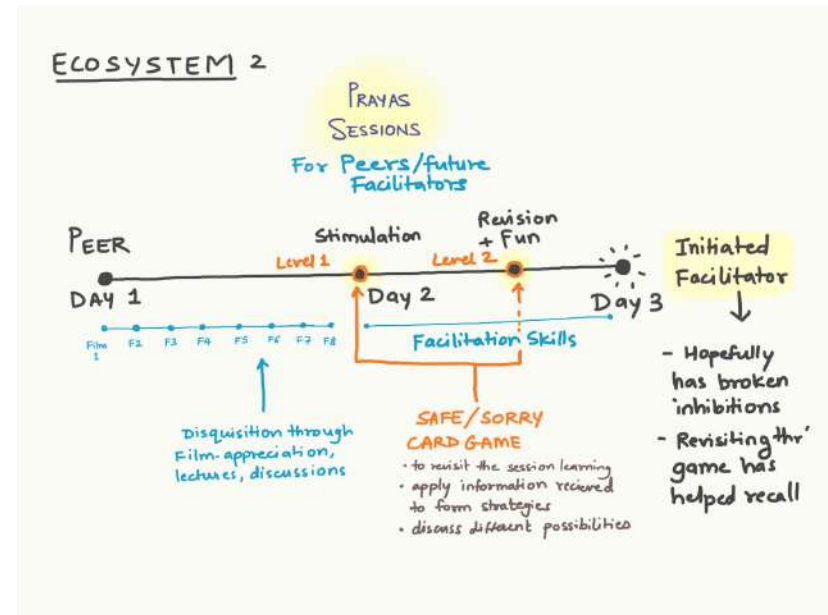 ECOSYSTEM 2
PRAYAS
SESSIONS
For Peers/future
Facilitators
PEER
Stimulation
Revision
+ Fun
Level 1
Level 2
DAY 1
Day 2
Day 3
Initiated
Facilitator
Film
1
F2
F3
F4
F5
F6
F7
F8
Facilitation Skills
Disquisition through
Film-appreciation,
lectures, discussions
SAFE/SORRY
CARD GAME
• to revisit the session learning
• apply information recieved
to form strategies
• discuss different possibilities
- Hopefully
has broken
inhibitions
- Revisiting thr'
game has
helped recall